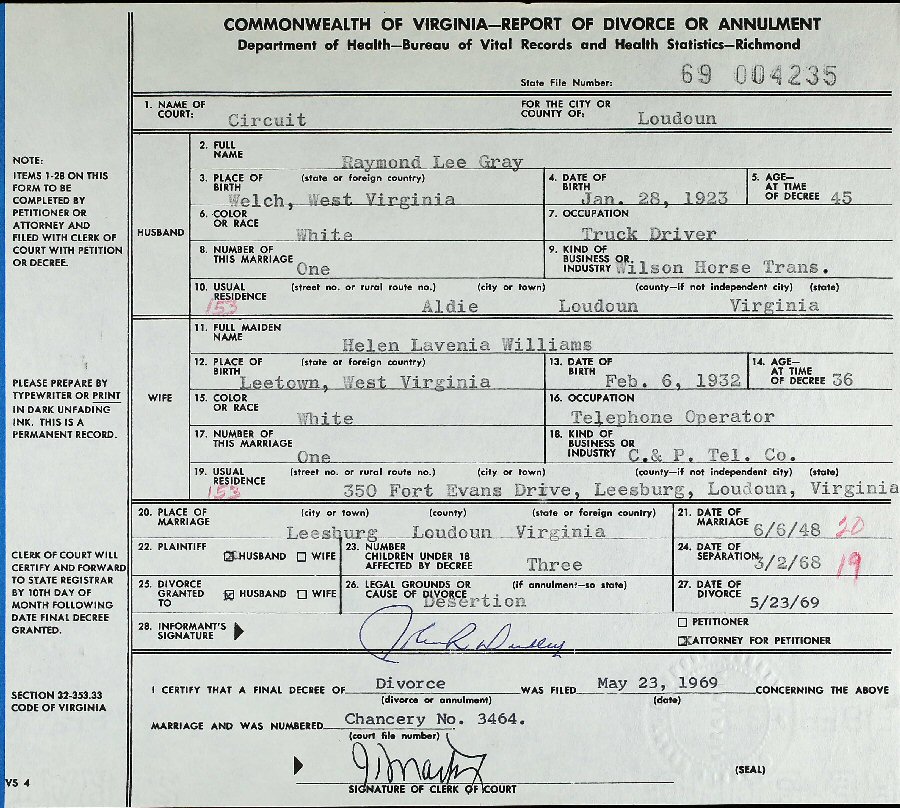 COMMONWEALTH OF VIRGINIA—REPORT OF DIVORCE OR ANNULMENT
Department of Health—Bureau of Vital Records and Health Statistics—Richmond
State File Number: 69 004235
1. NAME OF COURT: Circuit FOR THE CITY OR COUNTY OF: Loudoun
NOTE:
ITEMS 1-28 ON THIS
FORM TO BE
COMPLETED BY
PETITIONER OR
ATTORNEY AND
FILED WITH CLERK OF
COURT WITH PETITION
OR DECREE.
HUSBAND
2. FULL NAME Raymond Lee Gray
3. PLACE OF BIRTH (state or foreign country) Welch, West Virginia 4. DATE OF BIRTH Jan. 28, 1923 5. AGE— AT TIME OF DECREE 45
6. COLOR OR RACE White 7. OCCUPATION Truck Driver
8. NUMBER OF THIS MARRIAGE One 9. KIND OF BUSINESS OR INDUSTRY Wilson Horse Trans.
10. USUAL RESIDENCE (street no. or rural route no.) (city or town) (county—if not independent city) (state)
153 Aldie Loudoun Virginia
PLEASE PREPARE BY
TYPEWRITER OR PRINT
IN DARK UNFADING
INK. THIS IS A
PERMANENT RECORD.
WIFE
11. FULL MAIDEN NAME Helen Lavenia Williams
12. PLACE OF BIRTH (state or foreign country) Leetown, West Virginia 13. DATE OF BIRTH Feb. 6, 1932 14. AGE— AT TIME OF DECREE 36
15. COLOR OR RACE White 16. OCCUPATION Telephone Operator
17. NUMBER OF THIS MARRIAGE One 18. KIND OF BUSINESS OR INDUSTRY C.& P. Tel. Co.
19. USUAL RESIDENCE (street no. or rural route no.) (city or town) (county—if not independent city) (state)
153 350 Fort Evans Drive, Leesburg, Loudoun, Virginia
20. PLACE OF MARRIAGE (city or town) (county) (state or foreign country) Leesburg Loudoun Virginia 21. DATE OF MARRIAGE 6/6/48 20
CLERK OF COURT WILL
CERTIFY AND FORWARD
TO STATE REGISTRAR
BY 10TH DAY OF
MONTH FOLLOWING
DATE FINAL DECREE
GRANTED.
22. PLAINTIFF ☒ HUSBAND ☐ WIFE 23. NUMBER CHILDREN UNDER 18 AFFECTED BY DECREE Three 24. DATE OF SEPARATION 3/2/68 19
25. DIVORCE GRANTED TO ☒ HUSBAND ☐ WIFE 26. LEGAL GROUNDS OR CAUSE OF DIVORCE (if annulment—so state) Desertion 27. DATE OF DIVORCE 5/23/69
28. INFORMANT'S SIGNATURE ☐ PETITIONER
☒ ATTORNEY FOR PETITIONER
SECTION 32-353.33
CODE OF VIRGINIA
I CERTIFY THAT A FINAL DECREE OF Divorce WAS FILED May 23, 1969 CONCERNING THE ABOVE
(divorce or annulment) (date)
MARRIAGE AND WAS NUMBERED Chancery No. 3464.
(court file number)
(SEAL)
SIGNATURE OF CLERK OF COURT
VS 4